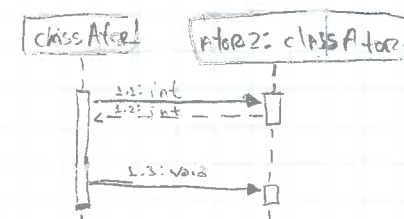 class Ator
Ator2: classAtor2
1.1: int
1.2: int
1.3: void